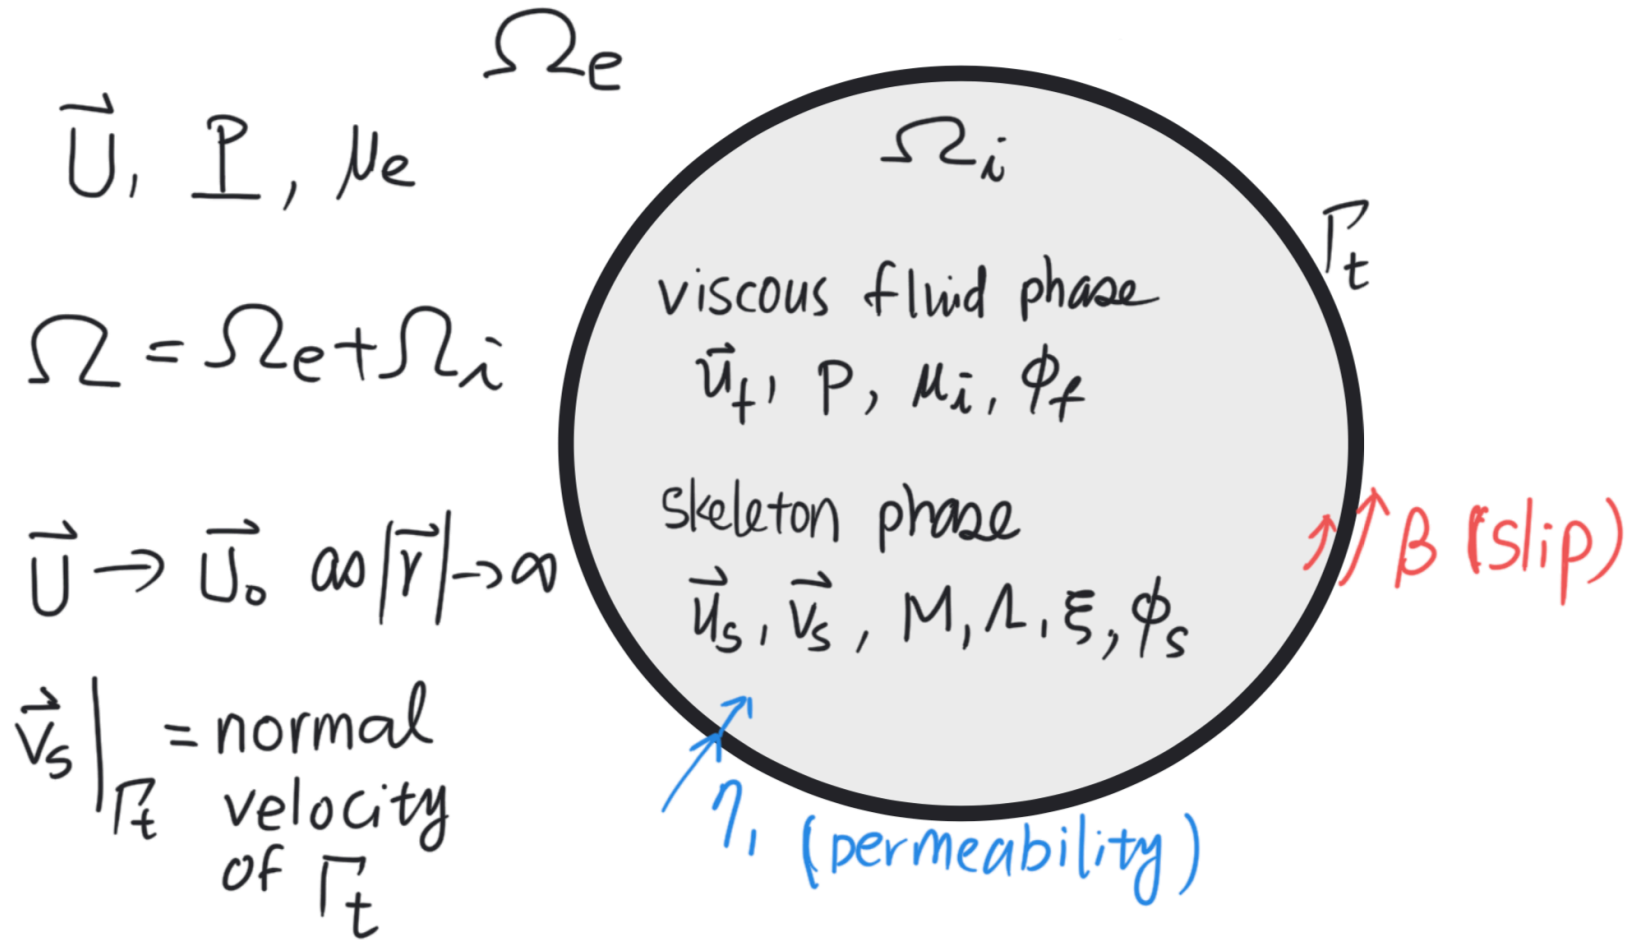 Ωe
U⃗, P, μe
Ω = Ωe + Ωi
U⃗ → U⃗₀ as |r⃗| → ∞
v⃗s|Γt = normal
velocity
of Γt
Ωi
viscous fluid phase
u⃗f, p, μi, ϕf
skeleton phase
u⃗s, v⃗s, M, Λ, ξ, ϕs
Γt
β (slip)
η, (permeability)